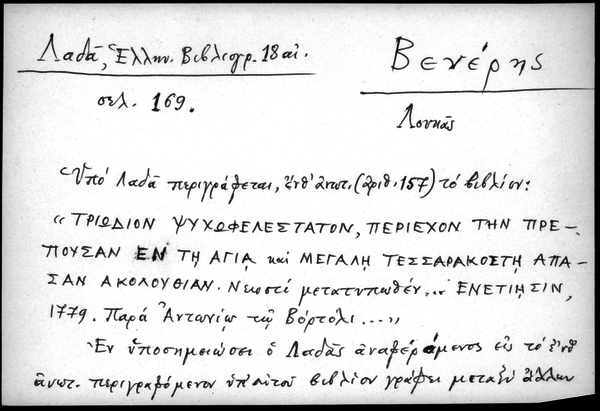 Λαδᾶ, Ἑλλην. Βιβλιογρ. 18 αἰ.
Βενέρης
σελ. 169.
Λουκᾶς
Ὑπό Λαδᾶ περιγράφεται, ἔνθ' ἀνωτ. (ἀριθ. 157) τό βιβλίον:
« ΤΡΙΩΔΙΟΝ ΨΥΧΩΦΕΛΕΣΤΑΤΟΝ, ΠΕΡΙΕΧΟΝ ΤΗΝ ΠΡΕ-
ΠΟΥΣΑΝ ΕΝ ΤΗ ΑΓΙᾼ καί ΜΕΓΑΛῌ ΤΕΣΣΑΡΑΚΟΣΤῌ ΑΠΑ-
ΣΑΝ ΑΚΟΛΟΥΘΙΑΝ. Νεωστί μετατυπωθέν... ΕΝΕΤΙῌΣΙΝ,
1779. Παρά Ἀντωνίῳ τῷ Βόρτολι ...»
Ἐν ὑποσημειώσει ὁ Λαδᾶς ἀναφερόμενος εἰς τό ἔνθ'
ἀνωτ. περιγραφόμενον ὑπ' αὐτοῦ βιβλίον γράφει μεταξύ ἄλλων